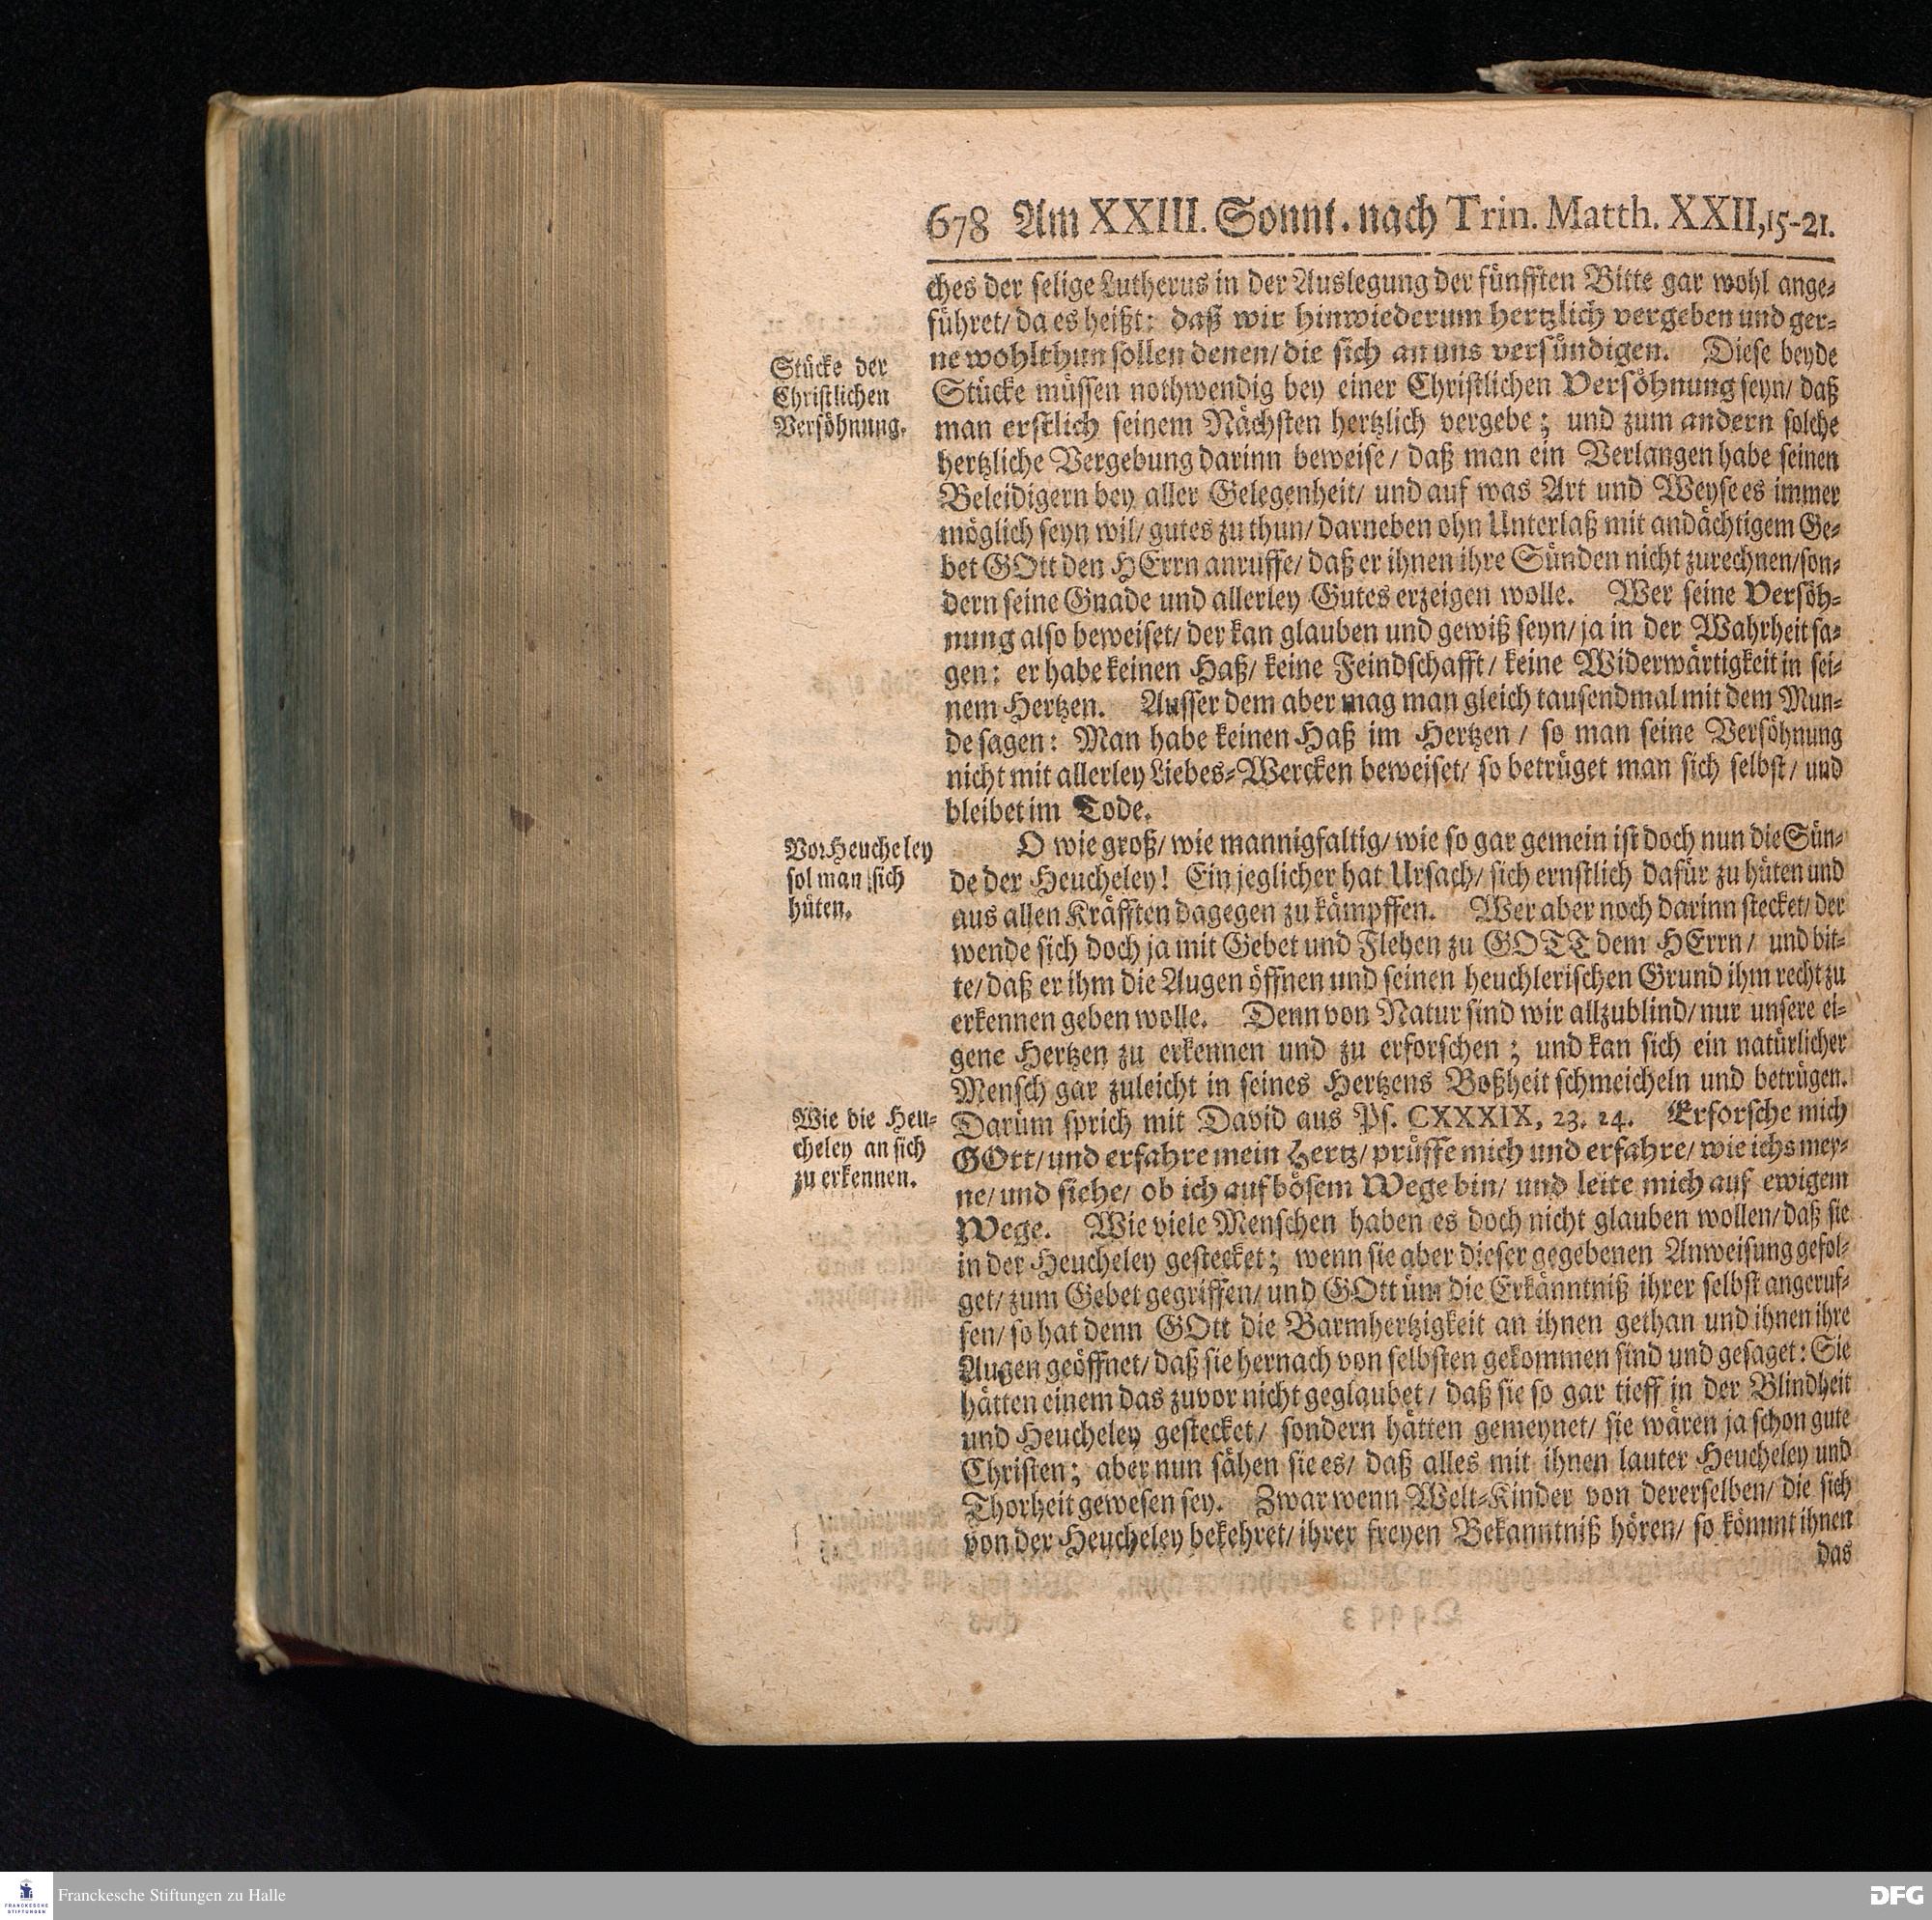 678 Am XXIII. Sonnt. nach Trin. Matth. XXII, 15-21.
ches der selige Lutherus in der Auslegung der fünfften Bitte gar wohl ange-
führet/ da es heißt: daß wir hinwiederum hertzlich vergeben und ger-
ne wohlthun sollen denen/ die sich an uns versündigen. Diese beyde
Stücke müssen nothwendig bey einer Christlichen Versöhnung seyn/ daß
man erstlich seinem Nächsten hertzlich vergebe; und zum andern solche
hertzliche Vergebung darinn beweise/ daß man ein Verlangen habe seinen
Beleidigern bey aller Gelegenheit/ und auf was Art und Weyse es immer
möglich seyn wil/ gutes zu thun/ darneben ohn Unterlaß mit andächtigem Ge-
bet GOtt den HErrn anruffe/ daß er ihnen ihre Sünden nicht zurechnen/ son-
dern seine Gnade und allerley Gutes erzeigen wolle. Wer seine Versöh-
nung also beweiset/ der kan glauben und gewiß seyn/ ja in der Wahrheit sa-
gen: er habe keinen Haß/ keine Feindschafft/ keine Widerwärtigkeit in sei-
nem Hertzen. Ausser dem aber mag man gleich tausendmal mit dem Mun-
de sagen: Man habe keinen Haß im Hertzen/ so man seine Versöhnung
nicht mit allerley Liebes-Wercken beweiset/ so betrüget man sich selbst/ und
bleibet im Tode.
Stücke der
Christlichen
Versöhnung.
O wie groß/ wie mannigfaltig/ wie so gar gemein ist doch nun die Sün-
de der Heucheley! Ein jeglicher hat Ursach/ sich ernstlich dafür zu hüten und
aus allen Kräfften dagegen zu kämpffen. Wer aber noch darinn stecket/ der
wende sich doch ja mit Gebet und Flehen zu GOTT dem HErrn/ und bit-
te/ daß er ihm die Augen öffnen und seinen heuchlerischen Grund ihm recht zu
erkennen geben wolle. Denn von Natur sind wir allzublind/ nur unsere ei-
gene Hertzen zu erkennen und zu erforschen; und kan sich ein natürlicher
Mensch gar zuleicht in seines Hertzens Boßheit schmeicheln und betrügen.
Darüm sprich mit David aus Ps. CXXXIX, 23. 24. Erforsche mich
GOtt/ und erfahre mein Hertz/ prüffe mich und erfahre/ wie ichs mey-
ne/ und siehe/ ob ich auf bösem Wege bin/ und leite mich auf ewigem
Wege. Wie viele Menschen haben es doch nicht glauben wollen/ daß sie
in der Heucheley gestecket; wenn sie aber dieser gegebenen Anweisung gefol-
get/ zum Gebet gegriffen/ und GOtt üm die Erkänntniß ihrer selbst angeruf-
fen/ so hat denn GOtt die Barmhertzigkeit an ihnen gethan und ihnen ihre
Augen geöffnet/ daß sie hernach von selbsten gekommen sind und gesaget: Sie
hätten einem das zuvor nicht geglaubet/ daß sie so gar tieff in der Blindheit
und Heucheley gestecket/ sondern hätten gemeynet/ sie wären ja schon gute
Christen; aber nun sähen sie es/ daß alles mit ihnen lauter Heucheley und
Thorheit gewesen sey. Zwar wenn Welt-Kinder von dererselben/ die sich
von der Heucheley bekehret/ ihrer freyen Bekanntniß hören/ so kömmt ihnen
das
Vor Heucheley
sol man sich
hüten.
Wie die Heu-
cheley an sich
zu erkennen.
Franckesche Stiftungen zu Halle
FRANCKESCHE
STIFTUNGEN
DFG